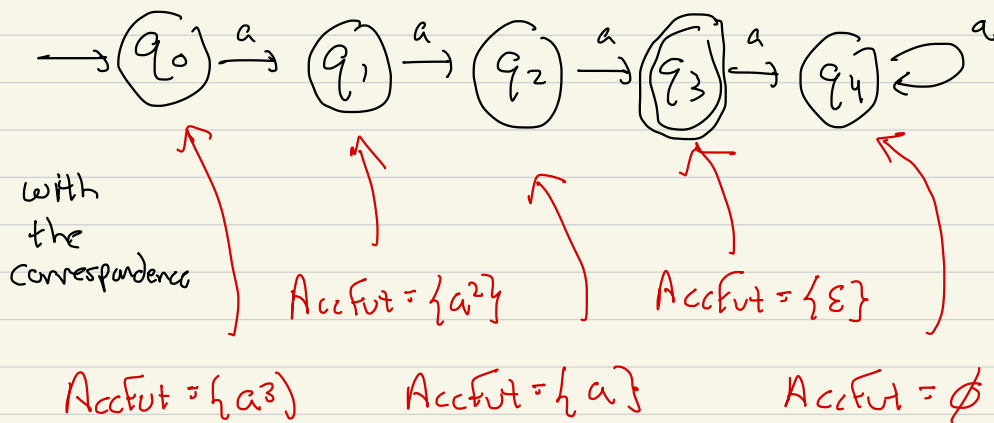 a a a a a
q0 q1 q2 q3 q4
with
the
correspondence
AccFut = {a²} AccFut = {ε}
AccFut = {a³} AccFut = {a} AccFut = ∅